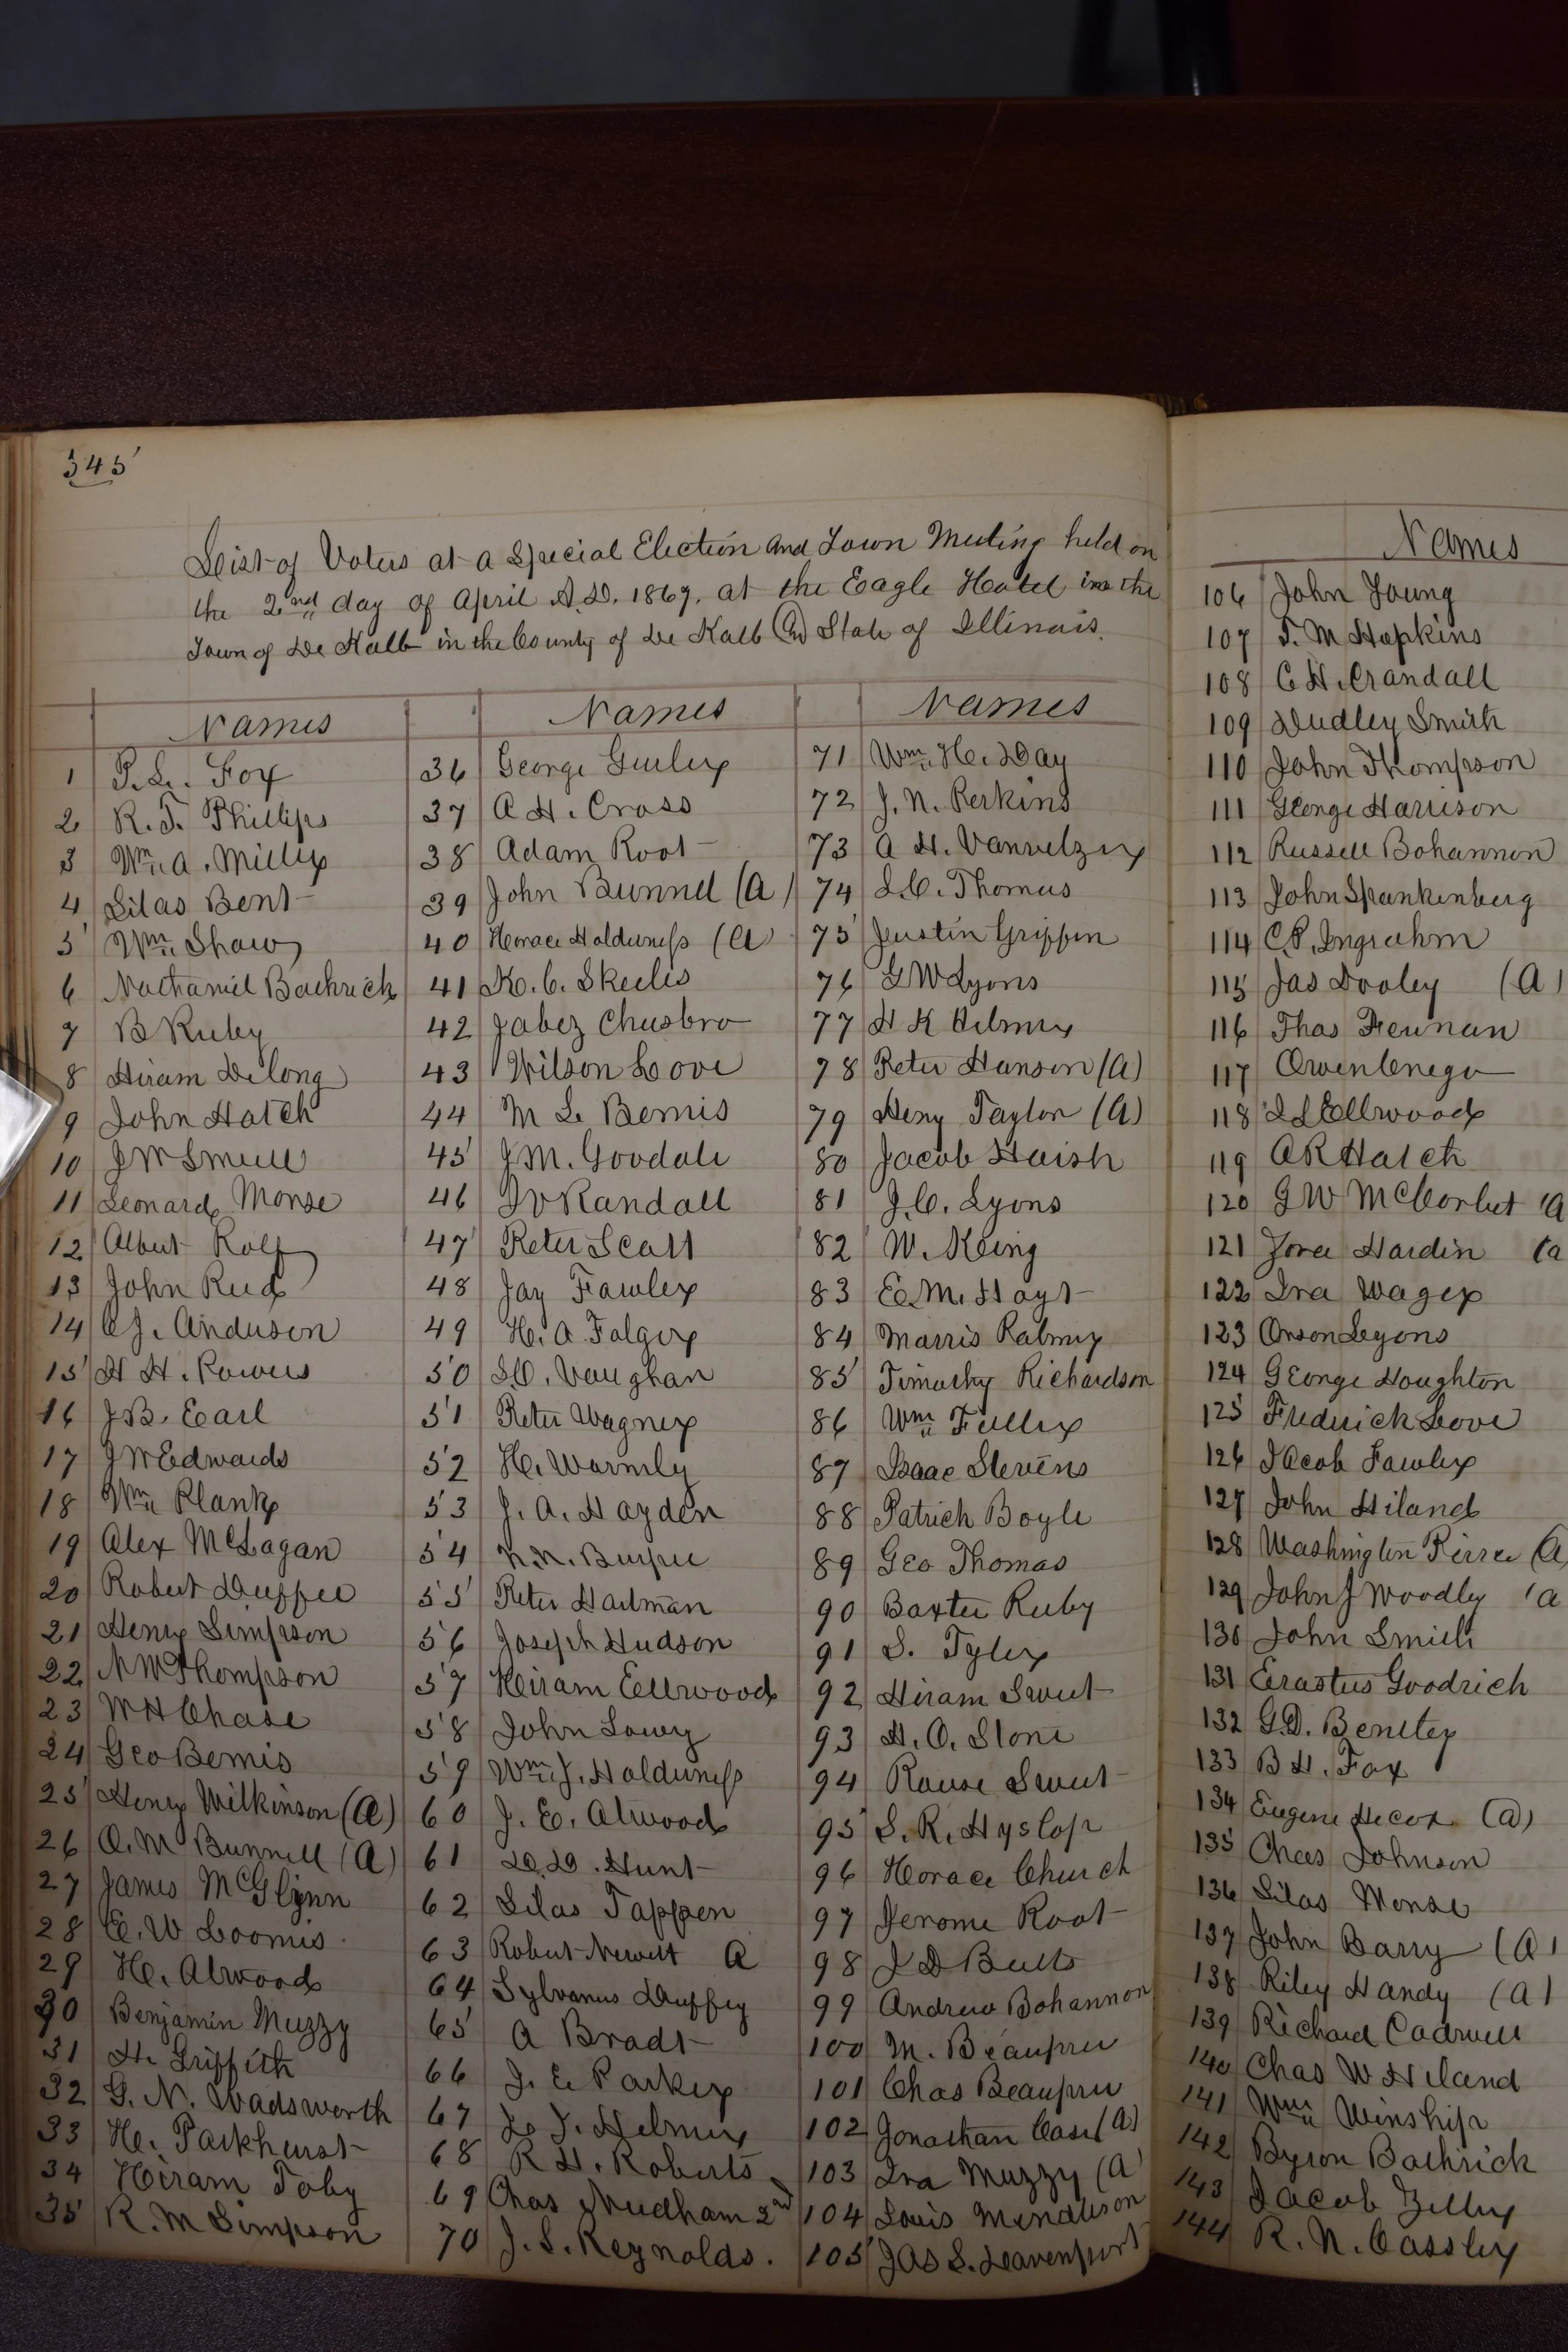 345
List of Voters at a Special Election and Town Meeting held on
the 2nd day of April A.D. 1867. at the Eagle Hotel in the
Town of De Kalb in the County of De Kalb and State of Illinois.
Names
1 P. L. Fox
2 R. T. Phillips
3 Wm. A. Miller
4 Silas Bent
5 Wm. Shaw
6 Nathaniel Bathrick
7 B Ruby
8 Hiram Delong
9 John Hatch
10 J W Smull
11 Leonard Morse
12 Albert Rolf
13 John Reed
14 C J. Anderson
15 H H. Powers
16 J B. Earl
17 J W Edwards
18 Wm Plank
19 Alex McLagan
20 Robert Duffee
21 Henry Simpson
22 N W Thompson
23 W H Chase
24 Geo Bemis
25 Henry Wilkinson (A)
26 O. M Bunnell (A)
27 James McGlynn
28 E. W Loomis
29 H. Atwood
30 Benjamin Muzzy
31 H. Griffith
32 G. N. Wadsworth
33 H. Parkhurst
34 Hiram Toby
35 R. M Simpson
Names
36 George Gurley
37 A H. Cross
38 Adam Root
39 John Bunnel (A)
40 Horace Holderness (A)
41 K. C. Skeeles
42 Jabez Chesbro
43 Wilson Love
44 M L Bemis
45 J M. Goodale
46 I V Randall
47 Peter Scott
48 Jay Fowler
49 H. A. Folger
50 S. O. Vaughan
51 Peter Wagner
52 H. Warmly
53 J. A. Hayden
54 N. N. Burpee
55 Peter Hartman
56 Joseph Hudson
57 Hiram Ellwood
58 John Lowry
59 Wm. J. Holderness
60 J. E. Atwood
61 D. D. Hunt
62 Silas Tappen
63 Robert Newitt A
64 Sylvanus Duffey
65 A Bradt
66 J. E Parker
67 L. T. Helmer
68 R H. Roberts
69 Chas Needham 2nd
70 J. S. Reynolds.
Names
71 Wm. H. Day
72 J. N. Perkins
73 A H. Vanvelzer
74 S. C. Thomas
75 Justin Griffin
76 G W Lyons
77 H K Helmer
78 Peter Hanson (A)
79 Heny Taylor (A)
80 Jacob Haish
81 J. C. Lyons
82 W. King
83 E. M. Hoyt
84 Morris Palmer
85 Timothy Richardson
86 Wm Fuller
87 Isaac Stevens
88 Patrick Boyle
89 Geo Thomas
90 Baxter Ruby
91 S. Tyler
92 Hiram Sweet
93 H. O. Stone
94 Rouse Sweet
95 S. R. Hyslop
96 Horace Church
97 Jerome Root
98 J D Butts
99 Andrew Bohannon
100 M. Beaupre
101 Chas Beaupre
102 Jonathan Case (A)
103 Ira Muzzy (A
104 Louis Mendleson
105 Jas S. Leavenport
Names
106 John Young
107 T. M Hopkins
108 C H. Crandall
109 Dudley Smith
110 John Thompson
111 George Harrison
112 Russell Bohannon
113 John Spankenberg
114 C. P. Ingrahm
115 Jas Dooley (A)
116 Thos Feenan
117 Owen
118 I L Ellwood
119 A R Hatch
120 G W McCorbet (A
121 Jove Hardin (A
122 Ira Wager
123 Orson Lyons
124 George Houghton
125 Frederick Love
126 Jacob Fowler
127 John Hiland
128 Washington Pierce (A)
129 John J Woodly (A
130 John Smith
131 Erastus Goodrich
132 G. D. Bentley
133 B H. Fox
134 Eugene Hecox (A)
135 Chas Johnson
136 Silas Morse
137 John Barry (A)
138 Riley Handy (A)
139 Richard Cadwell
140 Chas W Hiland
141 Wm Winship
142 Byron Bathrick
143 Jacob Zeller
144 R. N. Cassley